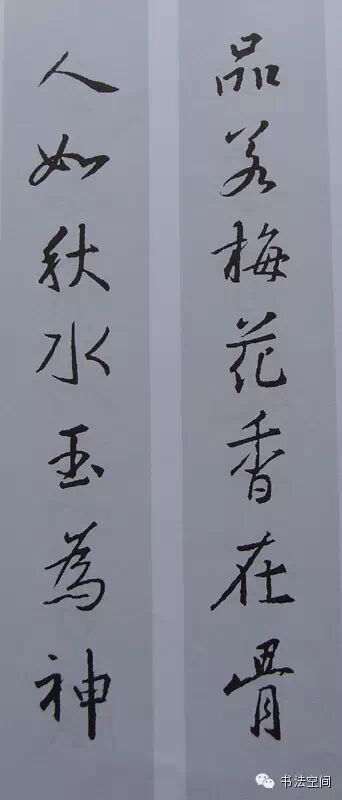 品若梅花香在骨
人如秋水玉為神
书法空间